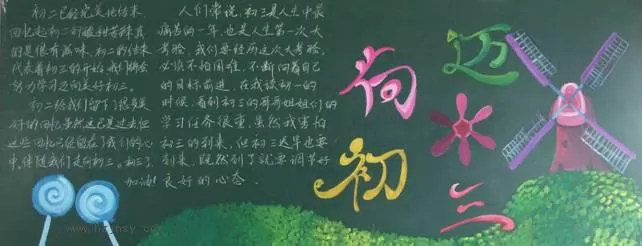 初二已经完美地结束,
回忆起初二的酸甜苦辣真
的是很有滋味,初二的结束
代表着初三的开始,我们都会
努力学习迈向美好初三。
初二给我们留下了很多美
好的回忆虽然这已是过去但
这些回忆已经留在了我们的心
中,伴随我们走向初三。初三了,
加油!
人们常说,初三是人生中最
痛苦的一年,也是人生第一次大
考验,我们要经历这次大考验,
必须不怕困难,不断向着自己
的目标前进,在我读初一的
时候,看到初三的哥哥姐姐们的
学习任务很重,虽然我害怕
初三的到来,但初三迟早也要
到来,既然到了就要调节好
良好的心态.
迈
向
初
三